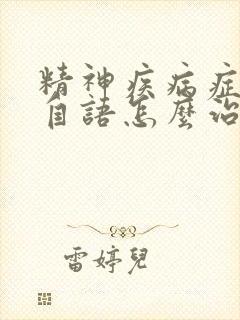 精神疾病症
自語怎麼治
雷婷兒